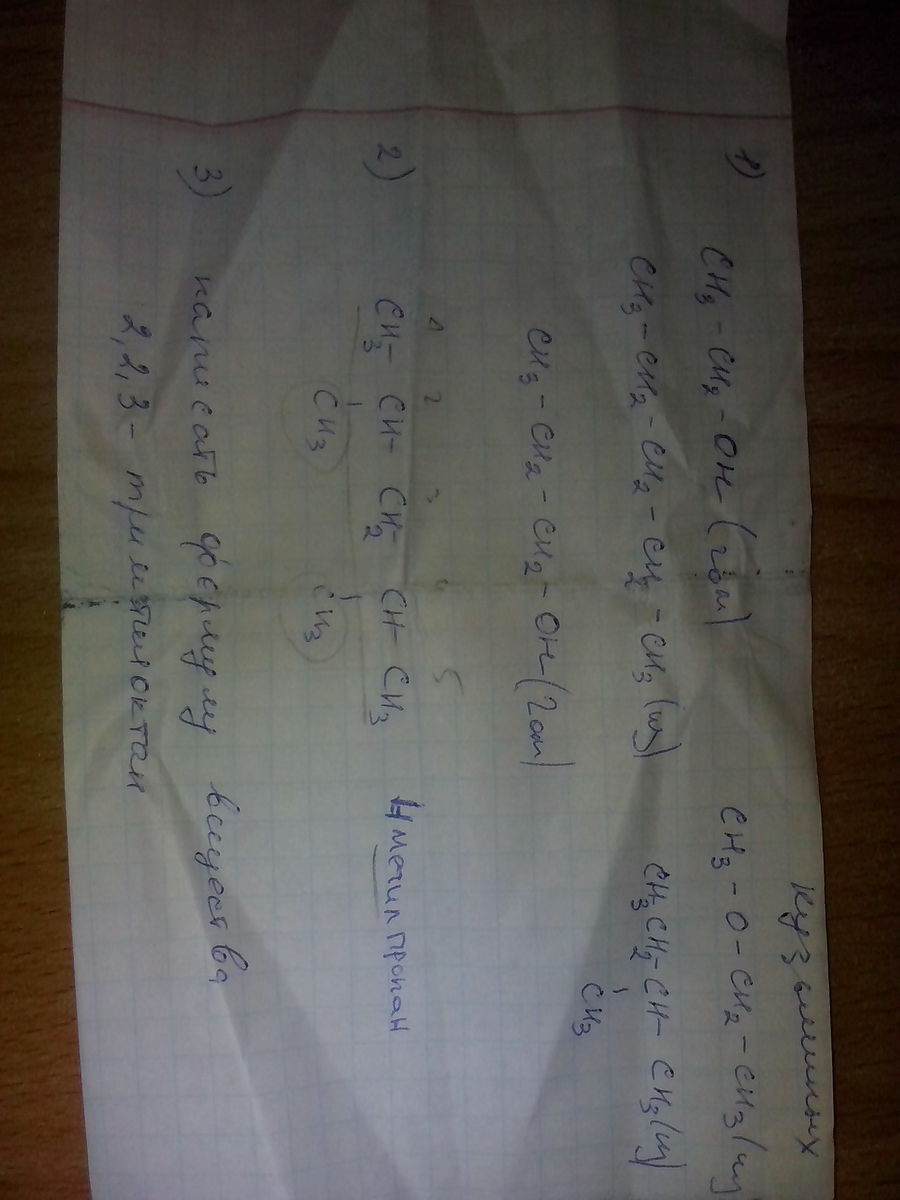 Кузьминых
1) CH3 - CH2 - OH (гом) CH3 - O - CH2 - CH3 (из)
CH3 - CH2 - CH2 - CH2 - CH3 (из) CH3CH2 - CH - CH3 (из)
CH3
CH3 - CH2 - CH2 - OH (гом)
1 2 3 4 5
2) CH3 - CH - CH2 - CH - CH3 метилпропан
CH3 CH3
3) написать формулу вещества
2,2,3 - триметилоктан